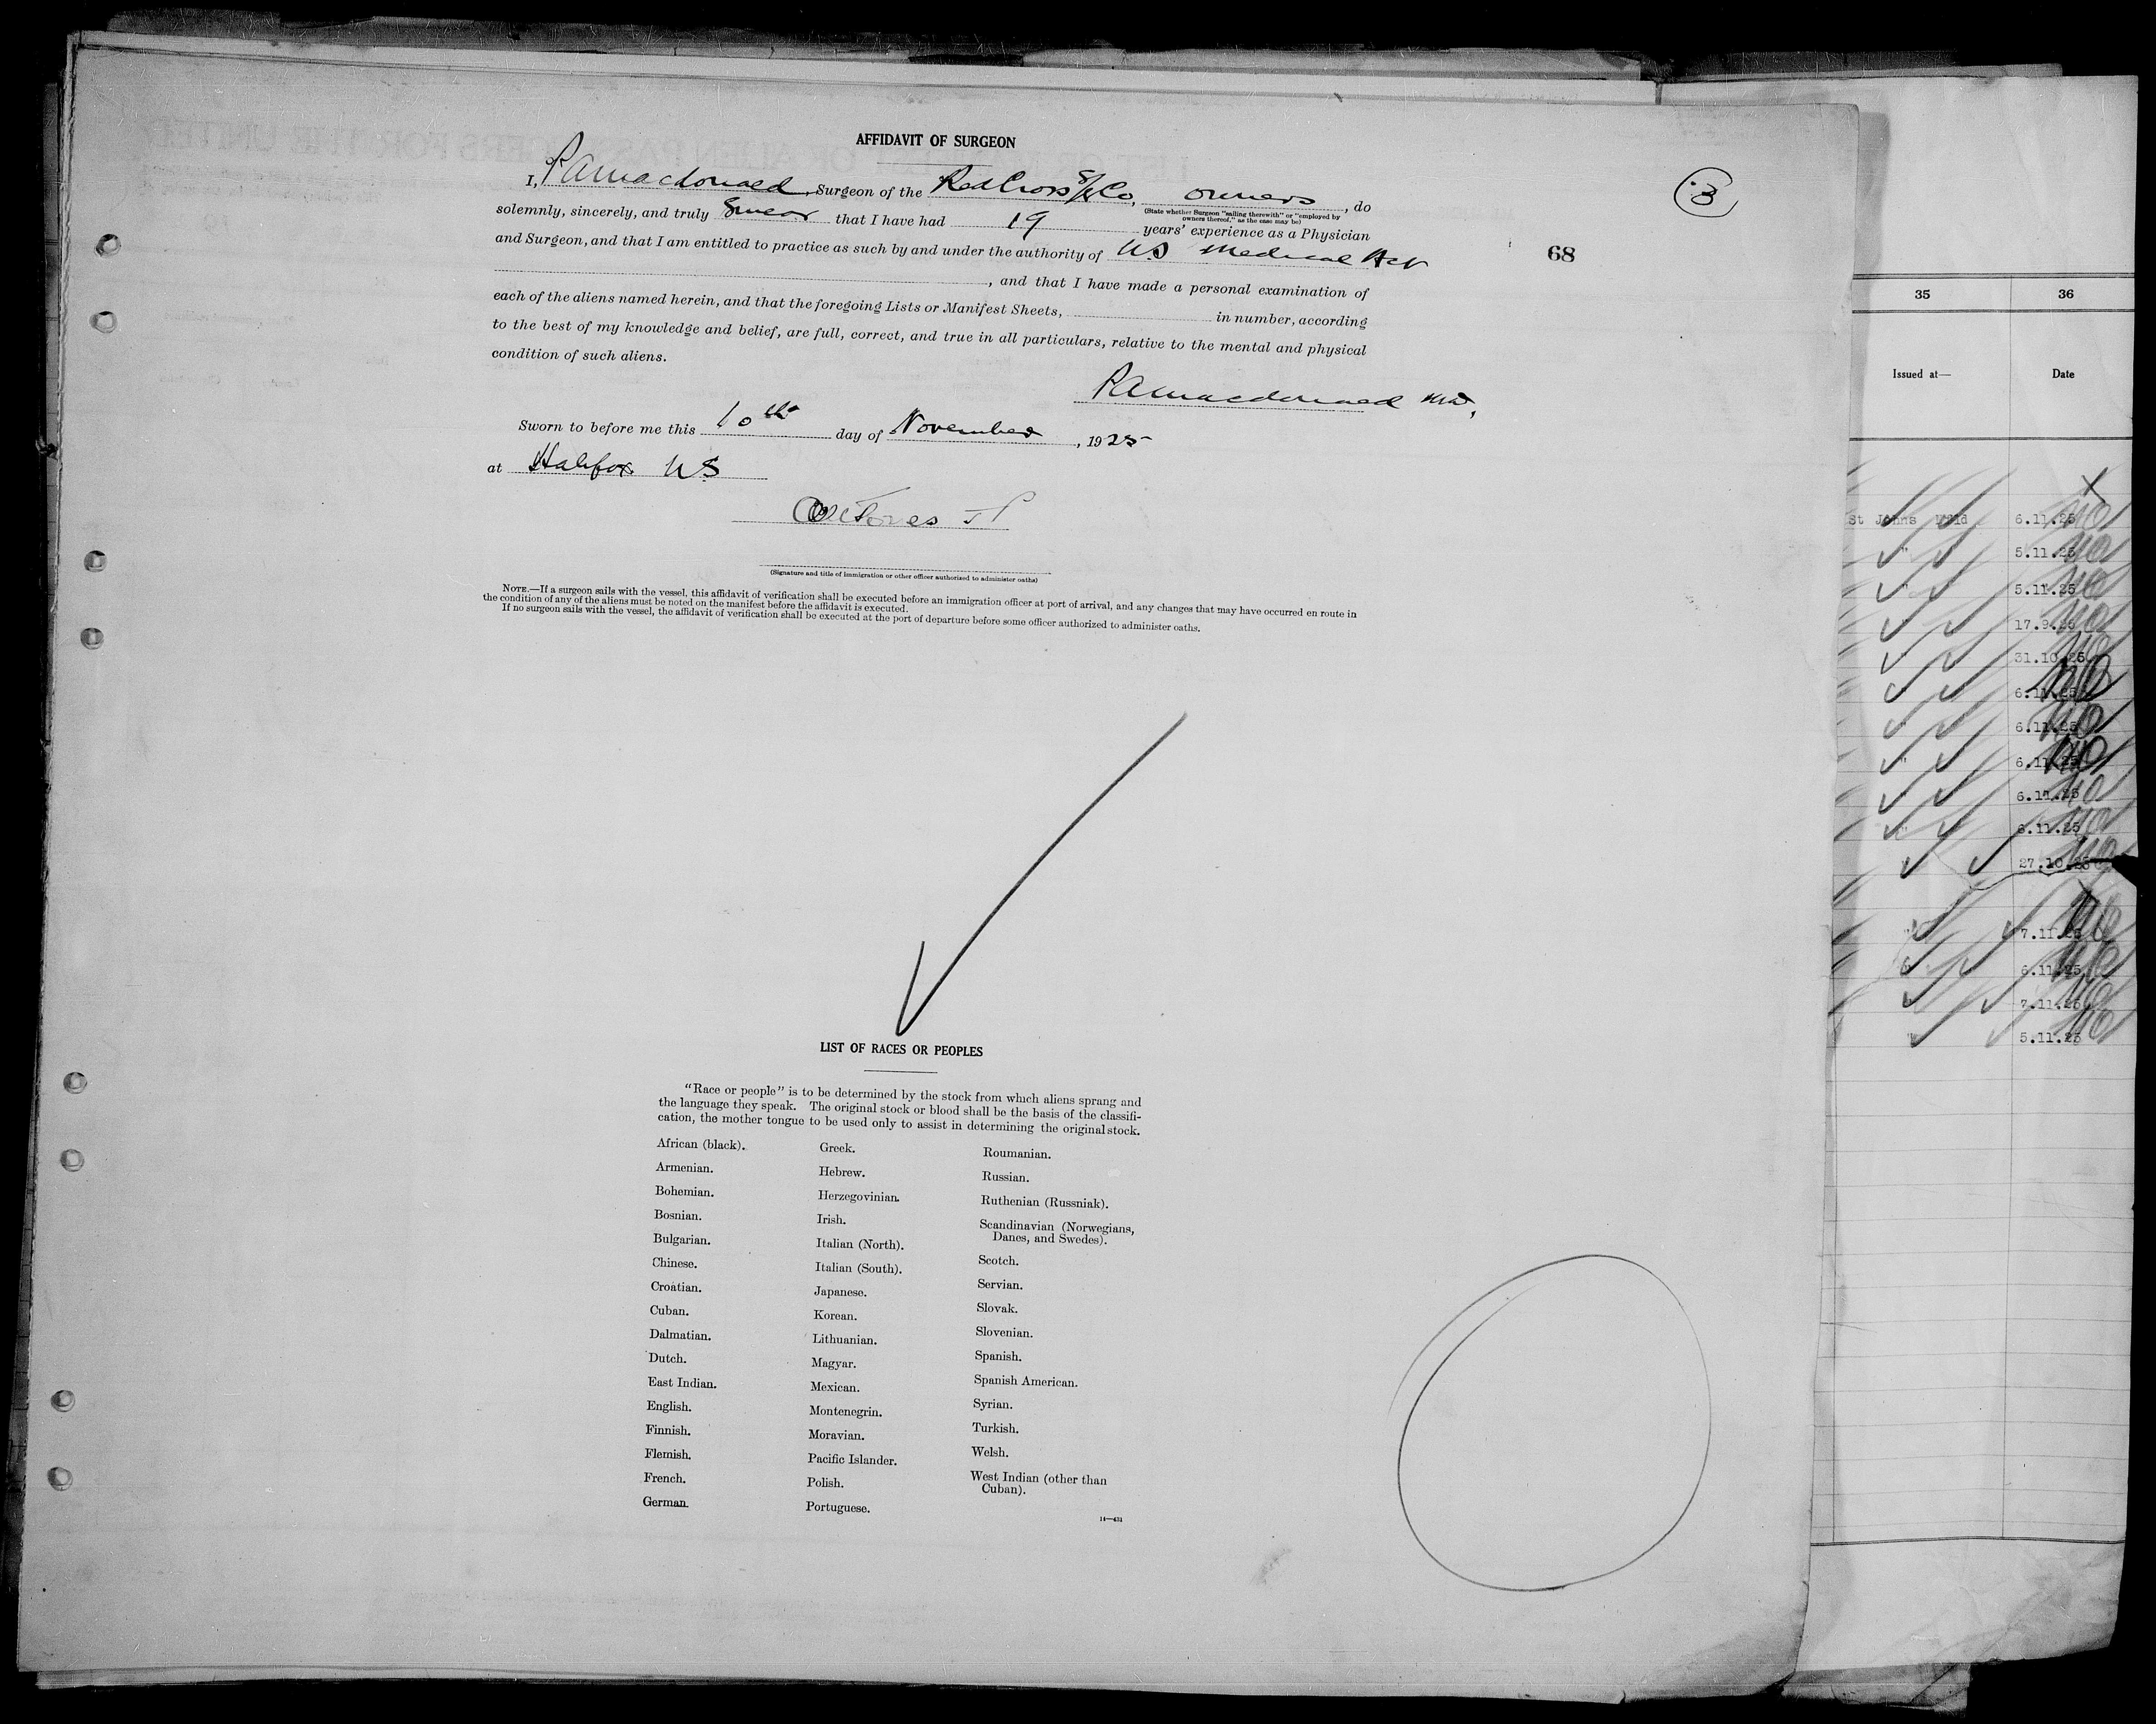 AFFIDAVIT OF SURGEON
I, P A Macdonald, Surgeon of the Red Cross S/S Co, owners, do
(State whether Surgeon "sailing therewith" or "employed by
owners thereof," as the case may be)
solemnly, sincerely, and truly Swear that I have had 19 years' experience as a Physician
and Surgeon, and that I am entitled to practice as such by and under the authority of NS Medical Act
, and that I have made a personal examination of
each of the aliens named herein, and that the foregoing Lists or Manifest Sheets, in number, according
to the best of my knowledge and belief, are full, correct, and true in all particulars, relative to the mental and physical
condition of such aliens.
P A Macdonald MD,
Sworn to before me this 10th day of November, 1925
at Halifax NS
JP
(Signature and title of immigration or other officer authorized to administer oaths)
NOTE.—If a surgeon sails with the vessel, this affidavit of verification shall be executed before an immigration officer at port of arrival, and any changes that may have occurred en route in
the condition of any of the aliens must be noted on the manifest before the affidavit is executed.
If no surgeon sails with the vessel, the affidavit of verification shall be executed at the port of departure before some officer authorized to administer oaths.
3
68
LIST OF RACES OR PEOPLES
"Race or people" is to be determined by the stock from which aliens sprang and
the language they speak. The original stock or blood shall be the basis of the classifi-
cation, the mother tongue to be used only to assist in determining the original stock.
African (black).
Armenian.
Bohemian.
Bosnian.
Bulgarian.
Chinese.
Croatian.
Cuban.
Dalmatian.
Dutch.
East Indian.
English.
Finnish.
Flemish.
French.
German.
Greek.
Hebrew.
Herzegovinian.
Irish.
Italian (North).
Italian (South).
Japanese.
Korean.
Lithuanian.
Magyar.
Mexican.
Montenegrin.
Moravian.
Pacific Islander.
Polish.
Portuguese.
Roumanian.
Russian.
Ruthenian (Russniak).
Scandinavian (Norwegians,
Danes, and Swedes).
Scotch.
Servian.
Slovak.
Slovenian.
Spanish.
Spanish American.
Syrian.
Turkish.
Welsh.
West Indian (other than
Cuban).
35 36
Issued at— Date
St Johns Nfld 6.11.25
" 5.11.25
" 5.11.25
17.9.25
31.10.25
6.11.25
6.11.25
" 6.11.25
" 6.11.25
6.11.25
27.10.25
7.11.25
6.11.25
7.11.25
5.11.25